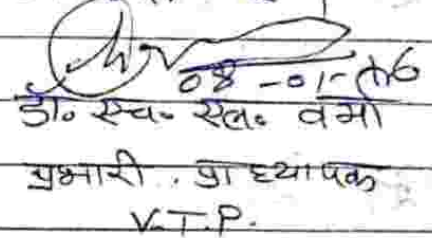 08-01-16
डॉ. एच. एल. वर्मा
प्रभारी. प्राध्यापक
V.T.P.